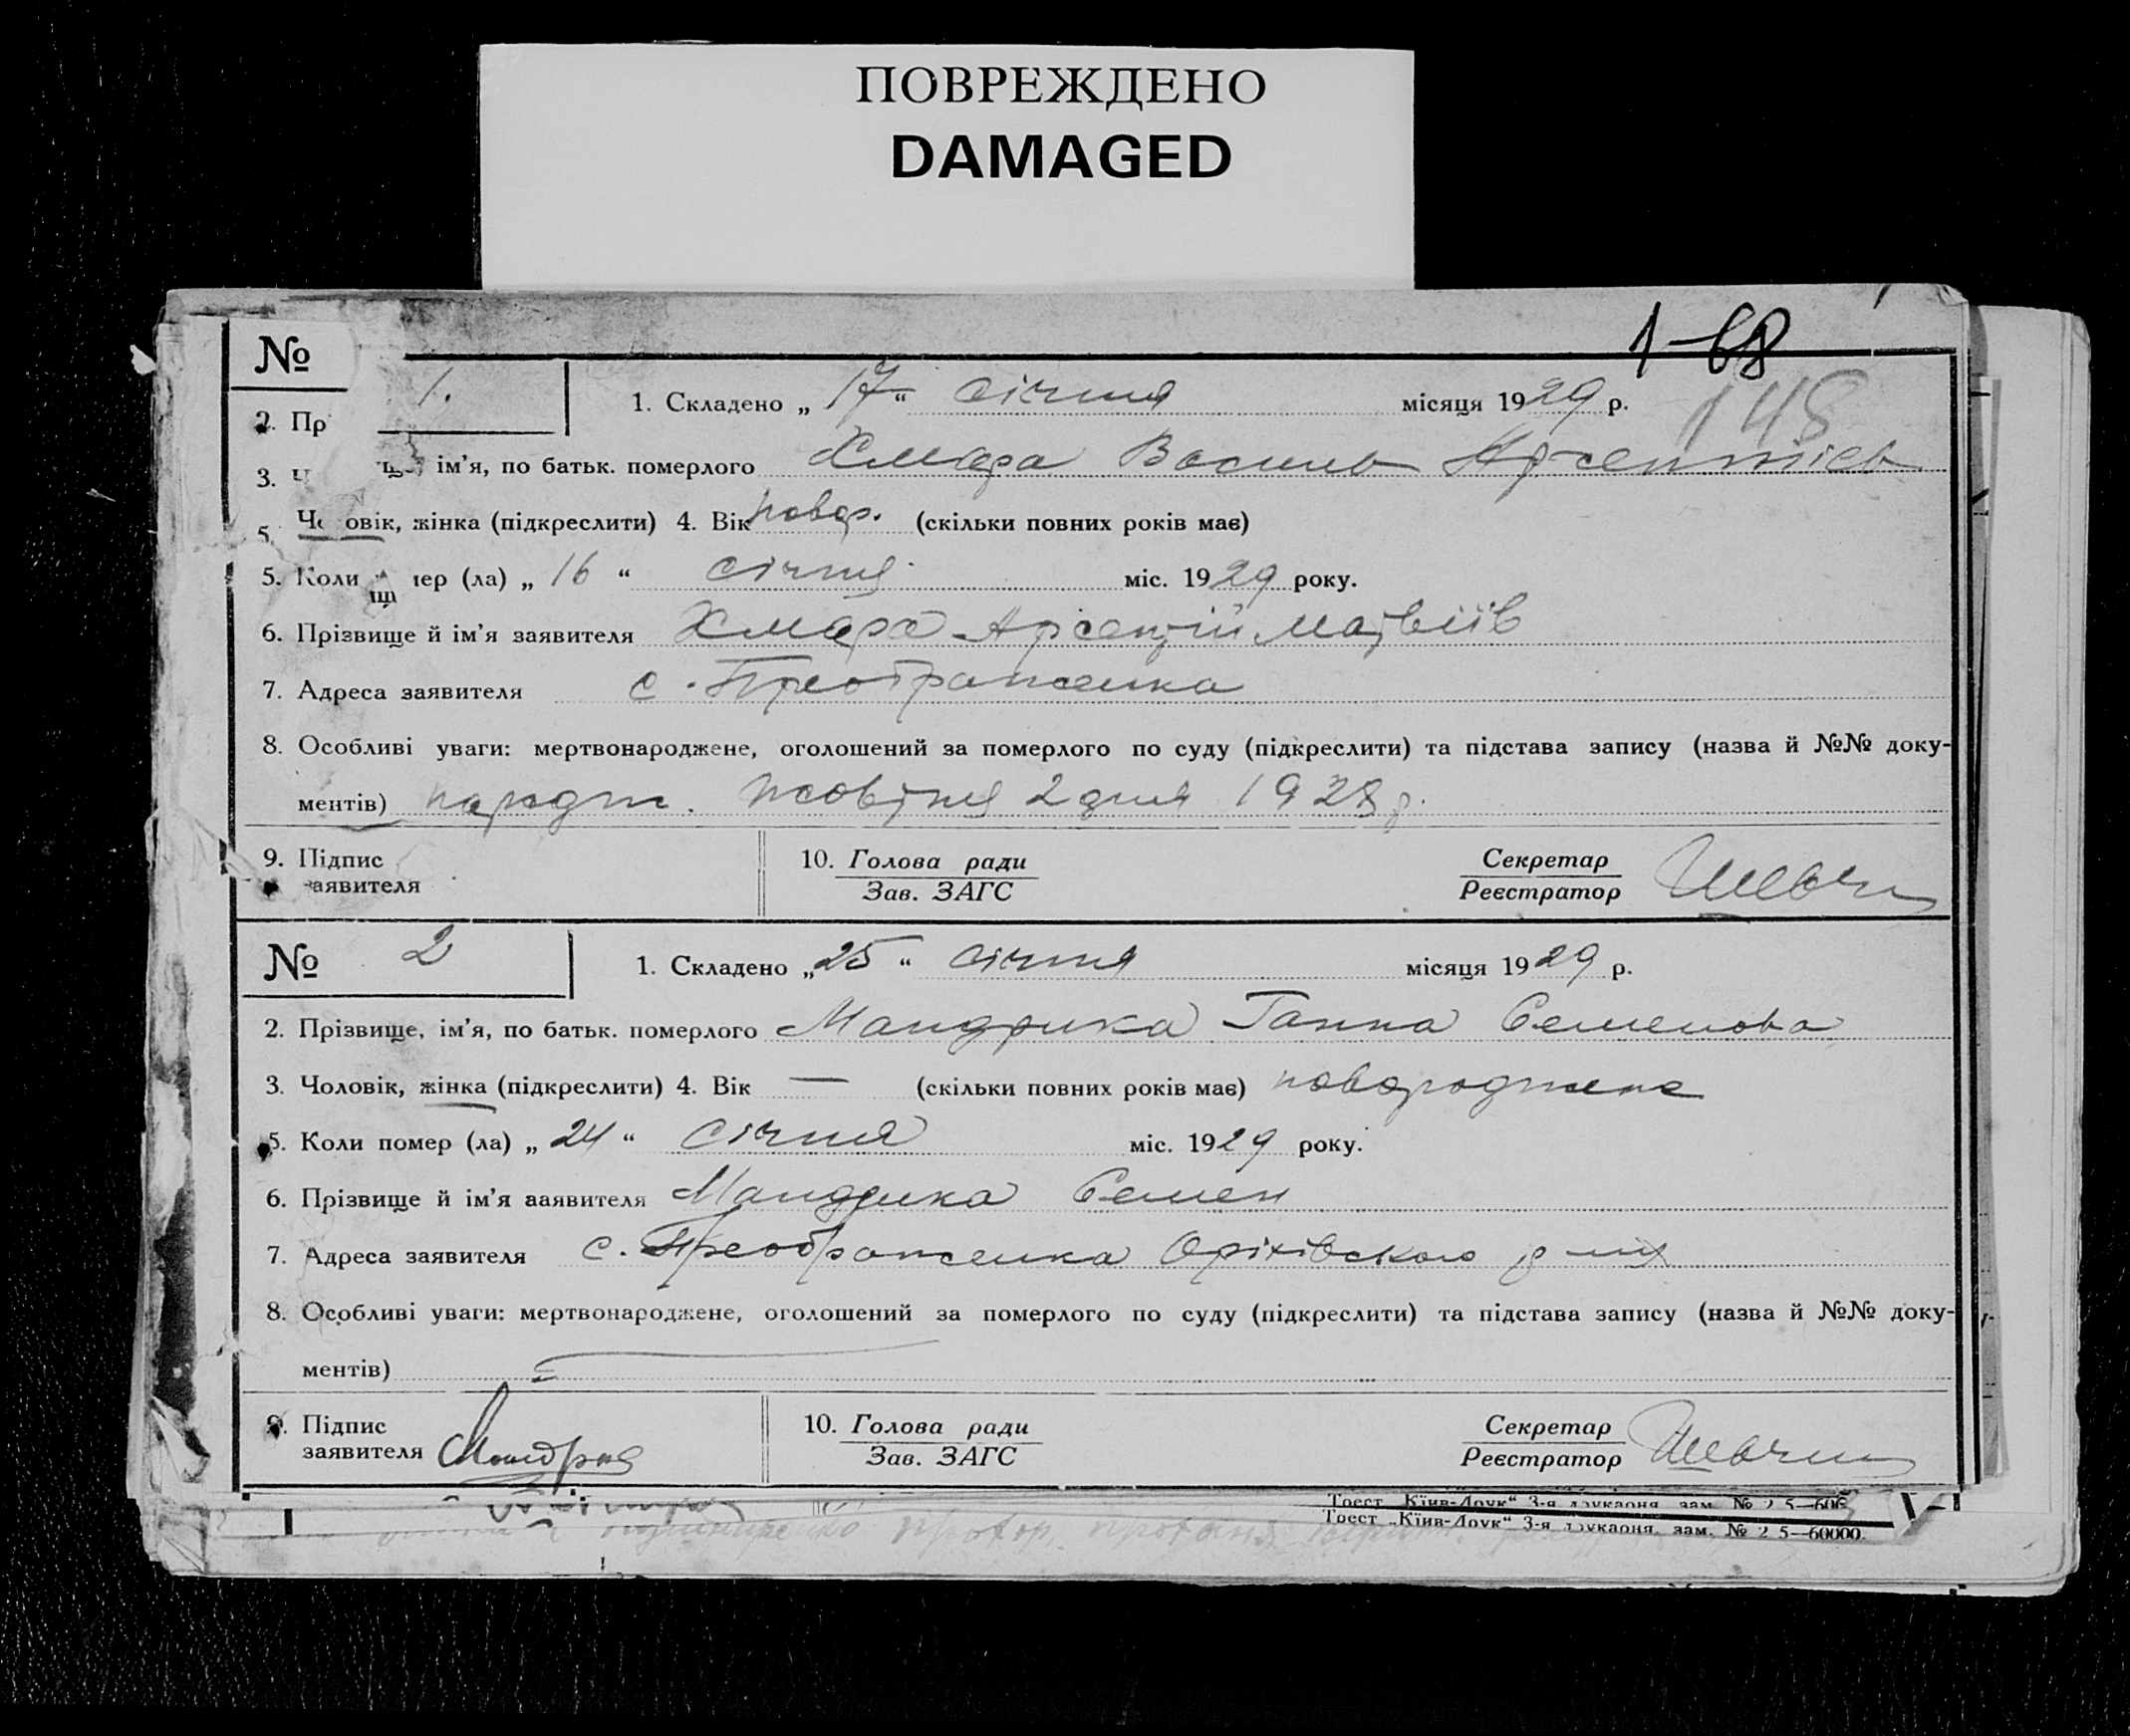 ПОВРЕЖДЕНО
DAMAGED
1-68
148
№ 1. 1. Складено „17“ січня місяця 1929 р.
2. Пр ще, ім’я, по батьк. померлого Хмара Василь Арсентіев
3. Ч
Чоловік, жінка (підкреслити) 4. Вік новор. (скільки повних років має)
5.
5. Коли мер (ла) „16“ січня міс. 1929 року.
щ
6. Прізвище й ім’я заявителя Хмара Арсентій Матвіїв
7. Адреса заявителя с. Преображенка
8. Особливі уваги: мертвонароджене, оголошений за померлого по суду (підкреслити) та підстава запису (назва й №№ доку-
ментів) народж. жовтня 2 дня 1928 р.
9. Підпис заявителя 10. Голова ради Секретар
Зав. ЗАГС Реєстратор
№ 2 1. Складено „25“ січня місяця 1929 р.
2. Прізвище, ім’я, по батьк. померлого Мандрика Ганна Семенова
3. Чоловік, жінка (підкреслити) 4. Вік — (скільки повних років має) новороджене
5. Коли помер (ла) „24“ січня міс. 1929 року.
6. Прізвище й ім’я ааявителя Мандрика Семен
7. Адреса заявителя с. Преображенка Оріхівського
8. Особливі уваги: мертвонароджене, оголошений за померлого по суду (підкреслити) та підстава запису (назва й №№ доку-
ментів)
9. Підпис 10. Голова ради Секретар
заявителя Зав. ЗАГС Реєстратор
Трест „Київ-Друк“ 3-я друкарня, зам. № 2 5—606
Трест „Київ-Друк“ 3-я друкарня, зам. № 2 5—60000.